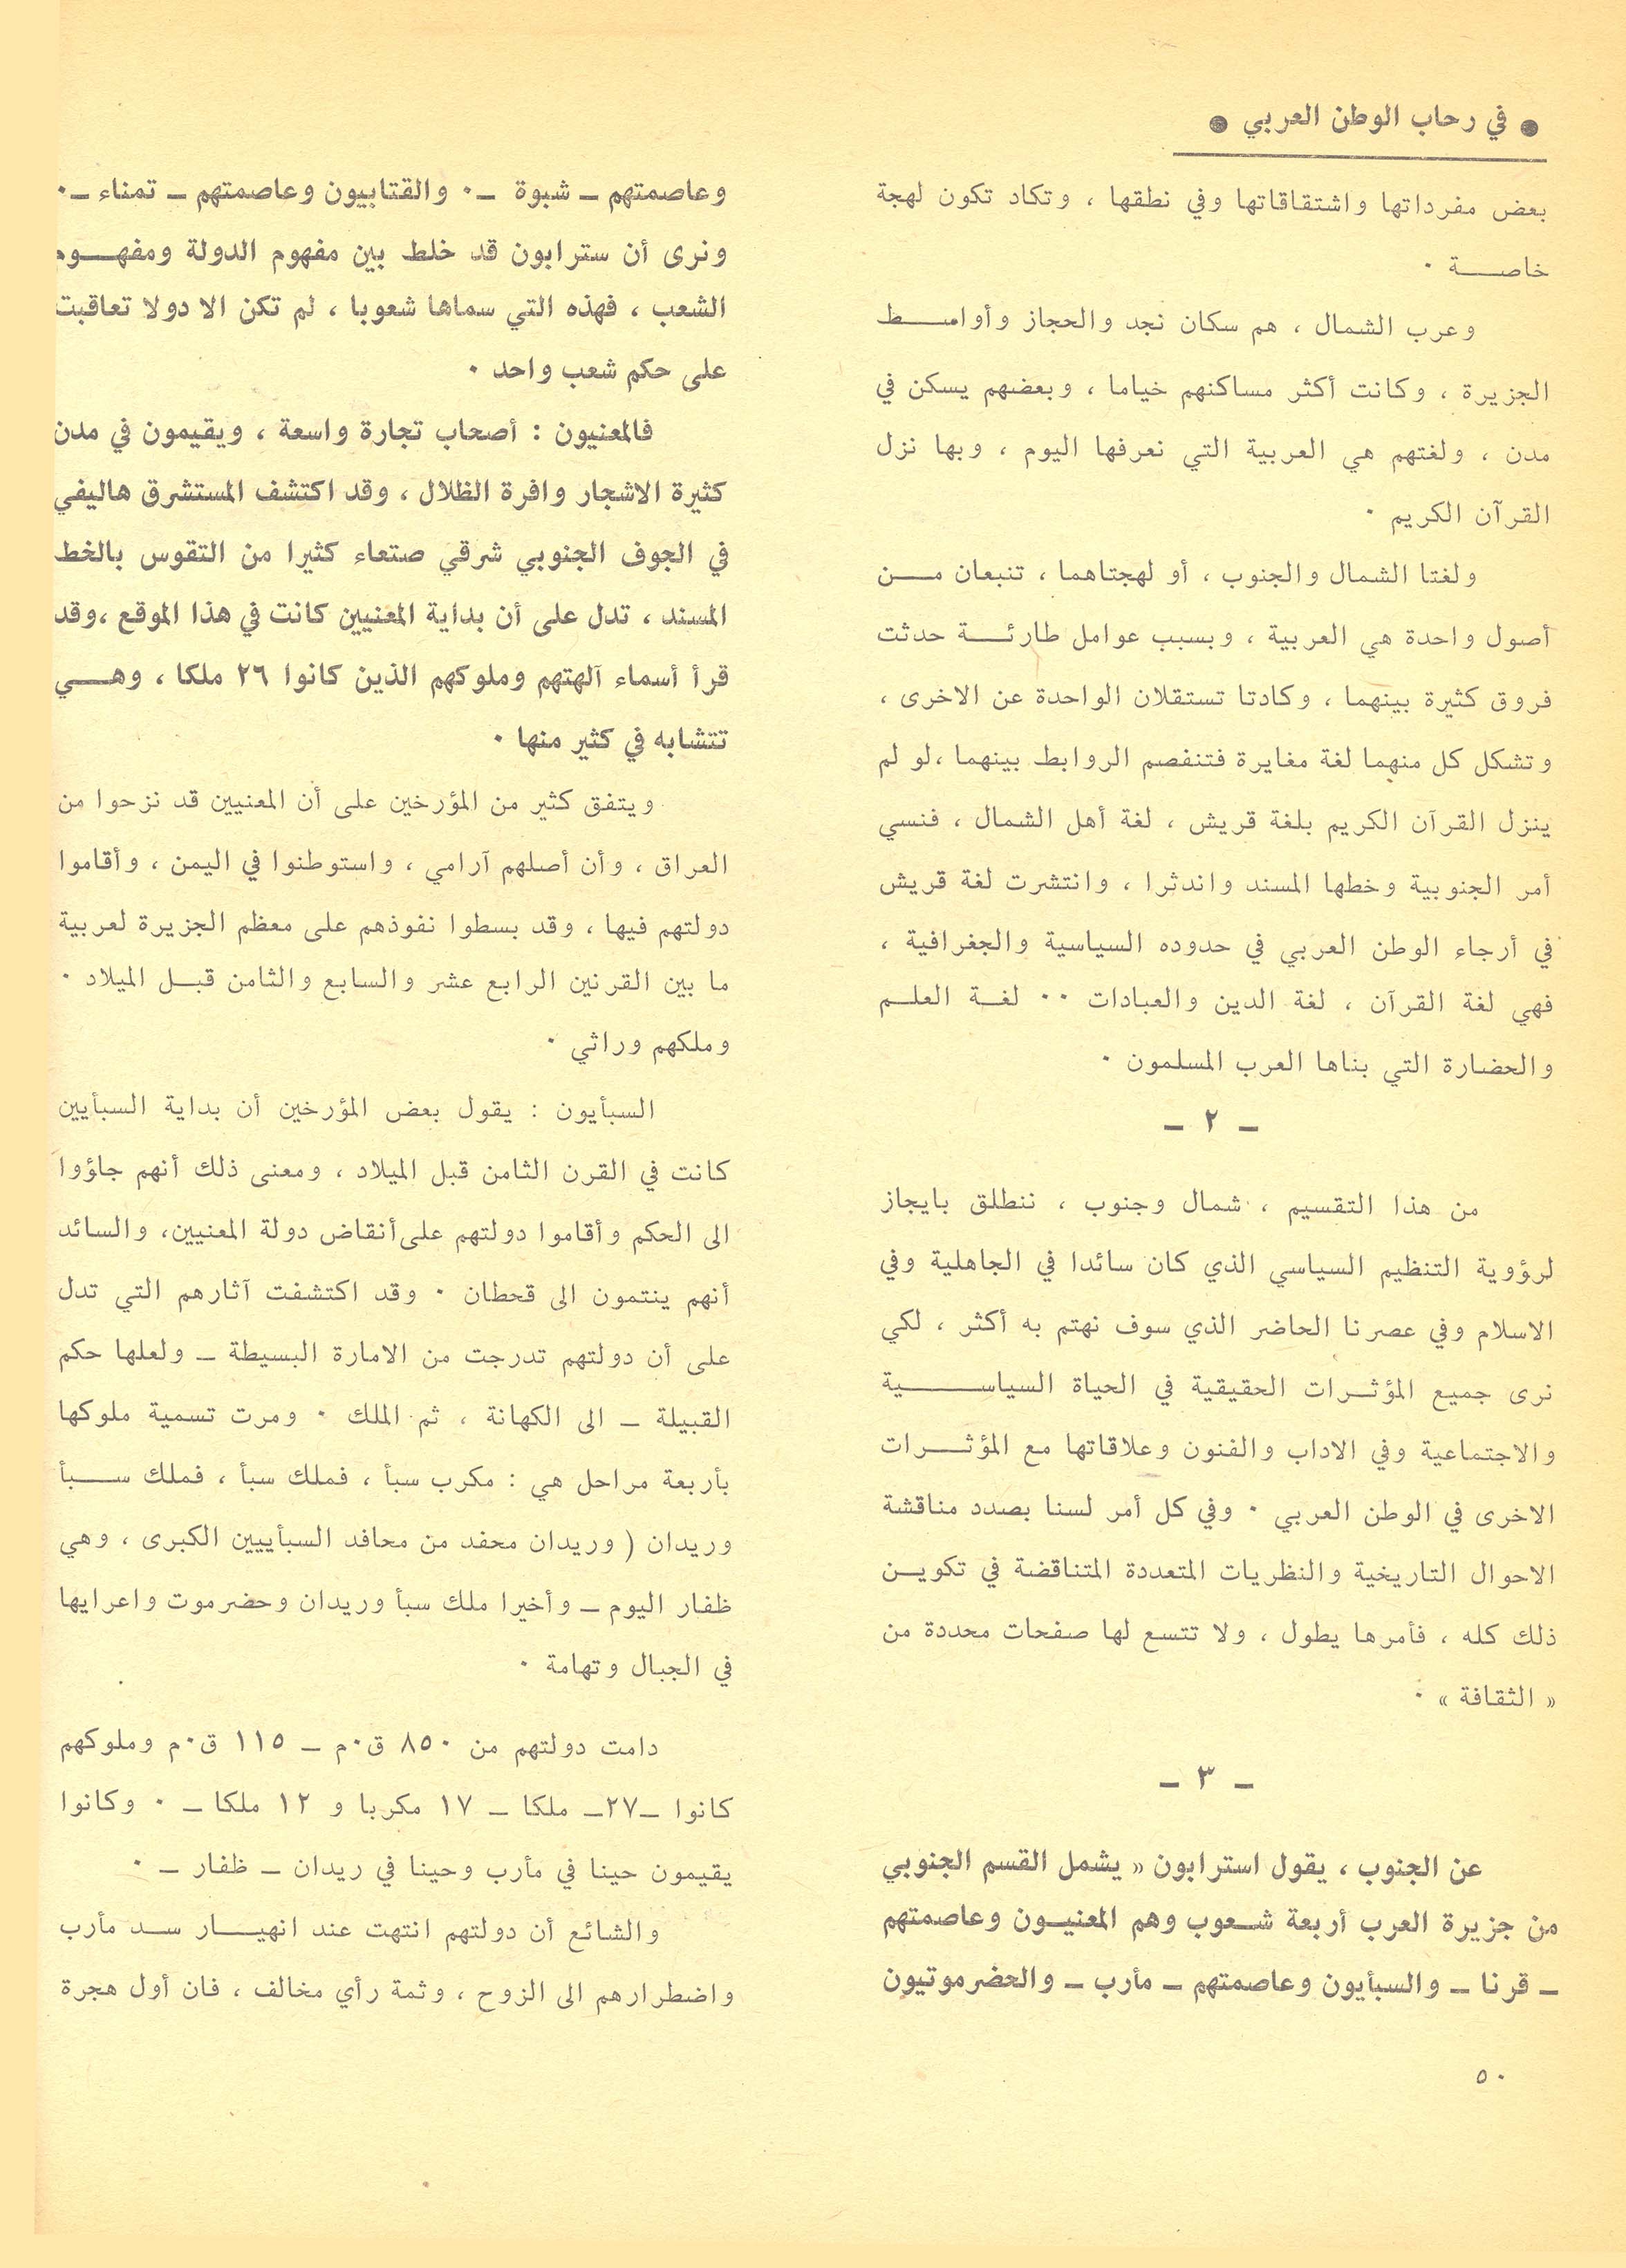 ● في رحاب الوطن العربي ●
بعض مفرداتها واشتقاقاتها وفي نطقها ، وتكاد تكون لهجة
خاصة ٠
وعرب الشمال ، هم سكان نجد والحجاز وأواسط
الجزيرة ، وكانت أكثر مساكنهم خياما ، وبعضهم يسكن في
مدن ، ولغتهم هي العربية التي نعرفها اليوم ، وبها نزل
القرآن الكريم ٠
ولغتا الشمال والجنوب ، أو لهجتاهما ، تنبعان من
أصول واحدة هي العربية ، وبسبب عوامل طارئة حدثت
فروق كثيرة بينهما ، وكادتا تستقلان الواحدة عن الاخرى ،
وتشكل كل منهما لغة مغايرة فتنفصم الروابط بينهما ،لو لم
ينزل القرآن الكريم بلغة قريش ، لغة أهل الشمال ، فنسي
أمر الجنوبية وخطها المسند واندثرا ، وانتشرت لغة قريش
في أرجاء الوطن العربي في حدوده السياسية والجغرافية ،
فهي لغة القرآن ، لغة الدين والعبادات ٠٠ لغة العلم
والحضارة التي بناها العرب المسلمون ٠
ـ ٢ ـ
من هذا التقسيم ، شمال وجنوب ، ننطلق بايجاز
لرؤوية التنظيم السياسي الذي كان سائدا في الجاهلية وفي
الاسلام وفي عصرنا الحاضر الذي سوف نهتم به أكثر ، لكي
نرى جميع المؤثرات الحقيقية في الحياة السياسية
والاجتماعية وفي الاداب والفنون وعلاقاتها مع المؤثرات
الاخرى في الوطن العربي ٠ وفي كل أمر لسنا بصدد مناقشة
الاحوال التاريخية والنظريات المتعددة المتناقضة في تكوين
ذلك كله ، فأمرها يطول ، ولا تتسع لها صفحات محددة من
« الثقافة » ٠
ـ ٣ ـ
عن الجنوب ، يقول استرابون « يشمل القسم الجنوبي
من جزيرة العرب أربعة شعوب وهم المعنيون وعاصمتهم
ـ قرنا ـ والسبأيون وعاصمتهم ـ مأرب ـ والحضرموتيون
وعاصمتهم ـ شبوة ـ٠ والقتابيون وعاصمتهم ـ تمناء ـ٠
ونرى أن سترابون قد خلط بين مفهوم الدولة ومفهوم
الشعب ، فهذه التي سماها شعوبا ، لم تكن الا دولا تعاقبت
على حكم شعب واحد ٠
فالمعنيون : أصحاب تجارة واسعة ، ويقيمون في مدن
كثيرة الاشجار وافرة الظلال ، وقد اكتشف المستشرق هاليفي
في الجوف الجنوبي شرقي صتعاء كثيرا من التقوس بالخط
المسند ، تدل على أن بداية المعنيين كانت في هذا الموقع ،وقد
قرأ أسماء آلهتهم وملوكهم الذين كانوا ٢٦ ملكا ، وهي
تتشابه في كثير منها ٠
ويتفق كثير من المؤرخين على أن المعنيين قد نزحوا من
العراق ، وأن أصلهم آرامي ، واستوطنوا في اليمن ، وأقاموا
دولتهم فيها ، وقد بسطوا نفوذهم على معظم الجزيرة لعربية
ما بين القرنين الرابع عشر والسابع والثامن قبل الميلاد ٠
وملكهم وراثي ٠
السبأيون : يقول بعض المؤرخين أن بداية السبأيين
كانت في القرن الثامن قبل الميلاد ، ومعنى ذلك أنهم جاؤوا
الى الحكم وأقاموا دولتهم على أنقاض دولة المعنيين، والسائد
أنهم ينتمون الى قحطان ٠ وقد اكتشفت آثارهم التي تدل
على أن دولتهم تدرجت من الامارة البسيطة ـ ولعلها حكم
القبيلة ـ الى الكهانة ، ثم الملك ٠ ومرت تسمية ملوكها
بأربعة مراحل هي : مكرب سبأ ، فملك سبأ ، فملك سبأ
وريدان ( وريدان محفد من محافد السبأييين الكبرى ، وهي
ظفار اليوم ـ وأخيرا ملك سبأ وريدان وحضرموت واعرايها
في الجبال وتهامة ٠
دامت دولتهم من ٨٥٠ ق٠م ـ ١١٥ ق٠م وملوكهم
كانوا ـ٢٧ـ ملكا ـ ١٧ مكربا و ١٢ ملكا ـ ٠ وكانوا
يقيمون حينا في مأرب وحينا في ريدان ـ ظفار ـ ٠
والشائع أن دولتهم انتهت عند انهيار سد مأرب
واضطرارهم الى الزوح ، وثمة رأي مخالف ، فان أول هجرة
٥٠